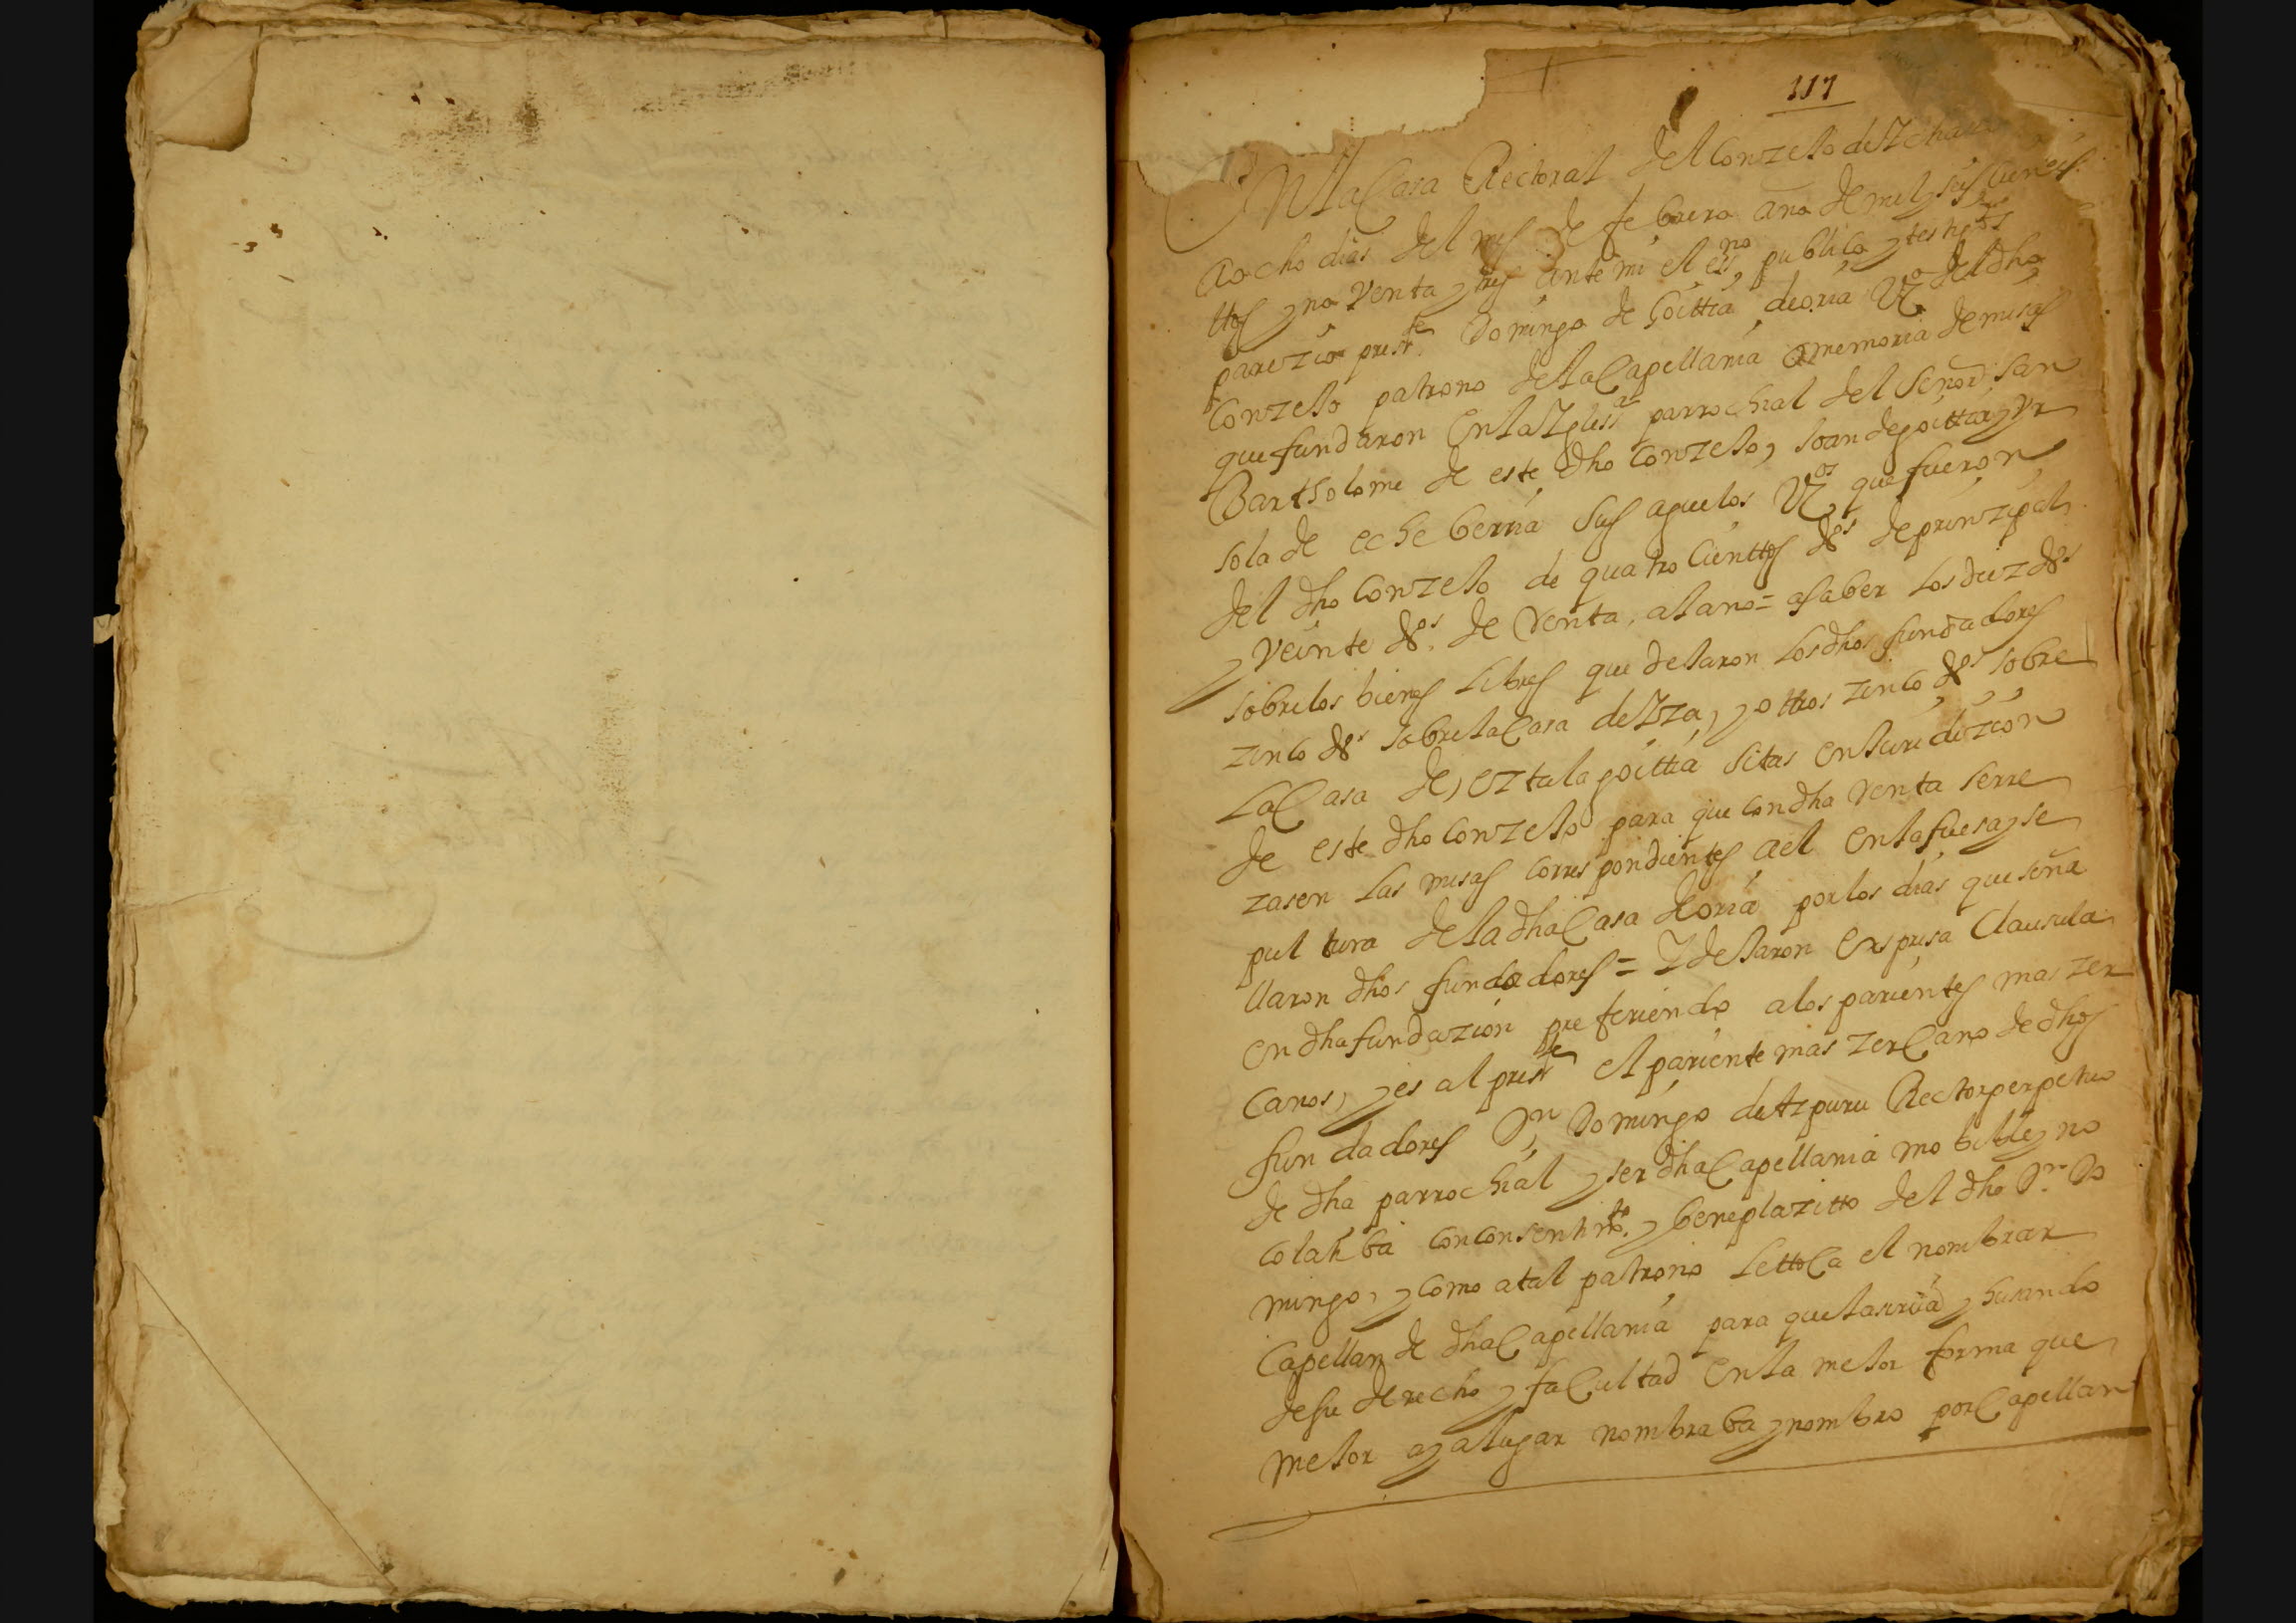 117
En la Casa Rectoral del Conzejo de Ichaso
a ocho dias del mes de febrero año de mil y seis cien
ttos y noventa y tres ante mi el essno publico y testigos
parezio preste Domingo de Goittia de oria Vzo del dho
Conzejo patrono de la Capellania o memoria de misas
que fundaron en la Iglessa parrochial del Señor San
Barthsolome de este dho Conzejo, Joan de goittia y Vr
sola de echeberria sus aguelos Vzos que fueron
del dho Conzejo de quatro cienttos dos de prinzipal
y veinte dos de Renta, al ano = a saber los diez dos
sobre los bienes libres que dejaron los dhos fundadores
zinco dos sobre la Casa de Iza, y ottros zinco dos sobre
la Casa de, eztala goittia sitas en juridizion
de este dho Conzejo para que con dha Renta se rre
zasen las misas correspondientes a el en la fuesa y se
pultura de la dha Casa de oria por los dias que seña
llaron dhos fundadores = I dejaron expresa Clausula
en dha fundazion prefериendo a los parientes mas zer
canos, y es al preste el pariente mas zercano de dhos
fundadores Dn Domingo de Azpuru Rector perpetuo
de dha parrochial y ser dha Capellania mobible y no
colatiba con consentimto y beneplazitto del dho Dn Do
mingo, y como a tal patrono le ttoca el nombrar
Capellan de dha Capellania para que la sirva y husando
de su derecho y facultad en la mejor forma que
mejor aya lugar nombraba y nombro por Capellan